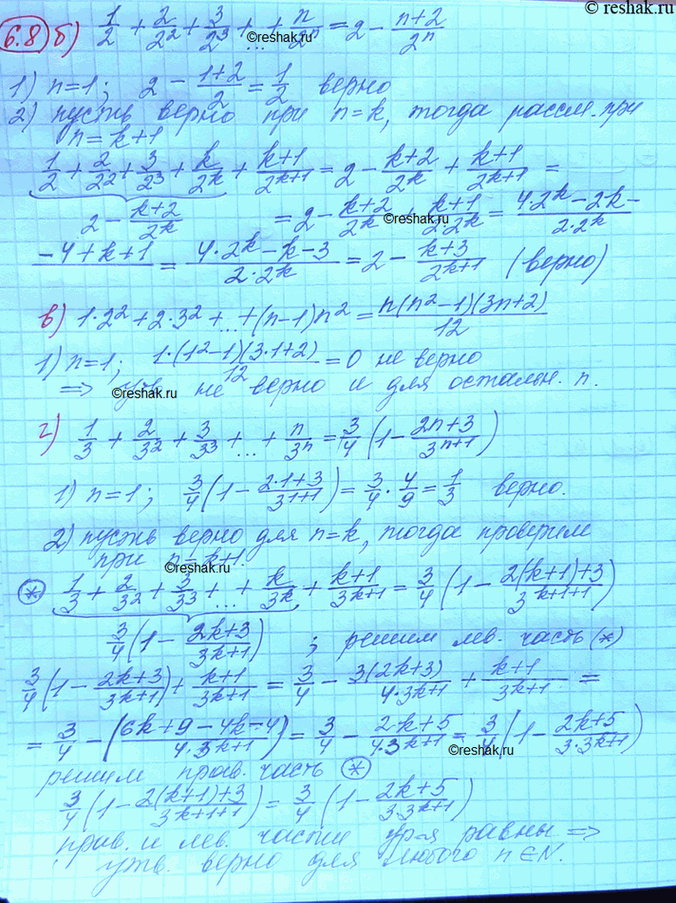 © reshak.ru
6.8 б) 1/2 + 2/2² + 3/2³ + ... + n/2ⁿ = 2 - (n+2)/2ⁿ
© reshak.ru
1) n=1; 2 - (1+2)/2 = 1/2 верно
2) пусть верно при n=k, тогда рассм. при
n=k+1
1/2 + 2/2² + 3/2³ + k/2ᵏ + (k+1)/2ᵏ⁺¹ = 2 - (k+2)/2ᵏ + (k+1)/2ᵏ⁺¹ =
2 - (k+2)/2ᵏ = 2 - (k+2)/2ᵏ + (k+1)/(2·2ᵏ) = (4·2ᵏ - 2k -
© reshak.ru
-4+k+1)/ = (4·2ᵏ - k - 3)/(2·2ᵏ) = 2 - (k+3)/2ᵏ⁺¹ (верно)
в) 1·2² + 2·3² + ... + (n-1)n² = n(n²-1)(3n+2)/12
1) n=1; 1·(1²-1)(3·1+2)/12 = 0 не верно
⇒ утв. не верно и для остальн. n.
© reshak.ru
г) 1/3 + 2/3² + 3/3³ + ... + n/3ⁿ = 3/4 (1 - (2n+3)/3ⁿ⁺¹)
1) n=1; 3/4 (1 - (2·1+3)/3¹⁺¹) = 3/4 · 4/9 = 1/3 верно.
2) пусть верно для n=k, тогда проверим
при n=k+1.
© reshak.ru
(*) 1/3 + 2/3² + 3/3³ + ... + k/3ᵏ + (k+1)/3ᵏ⁺¹ = 3/4 (1 - (2(k+1)+3)/3ᵏ⁺¹⁺¹)
3/4 (1 - (2k+3)/3ᵏ⁺¹) ; решим лев. часть (*)
3/4 (1 - (2k+3)/3ᵏ⁺¹) + (k+1)/3ᵏ⁺¹ = 3/4 - 3(2k+3)/(4·3ᵏ⁺¹) + (k+1)/3ᵏ⁺¹ =
= 3/4 - ((6k+9-4k-4)/(4·3ᵏ⁺¹)) = 3/4 - (2·k+5)/(4·3ᵏ⁺¹) = 3/4 (1 - (2k+5)/(3·3ᵏ⁺¹))
© reshak.ru
решим прав. часть (*)
3/4 (1 - (2(k+1)+3)/3ᵏ⁺¹⁺¹) = 3/4 (1 - (2k+5)/(3·3ᵏ⁺¹))
прав. и лев. части ур-я равны ⇒
утв. верно для любого n∈N.